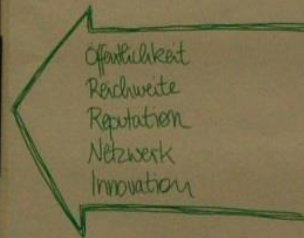 Öffentlichkeit
Reichweite
Reputation
Netzwerk
Innovation